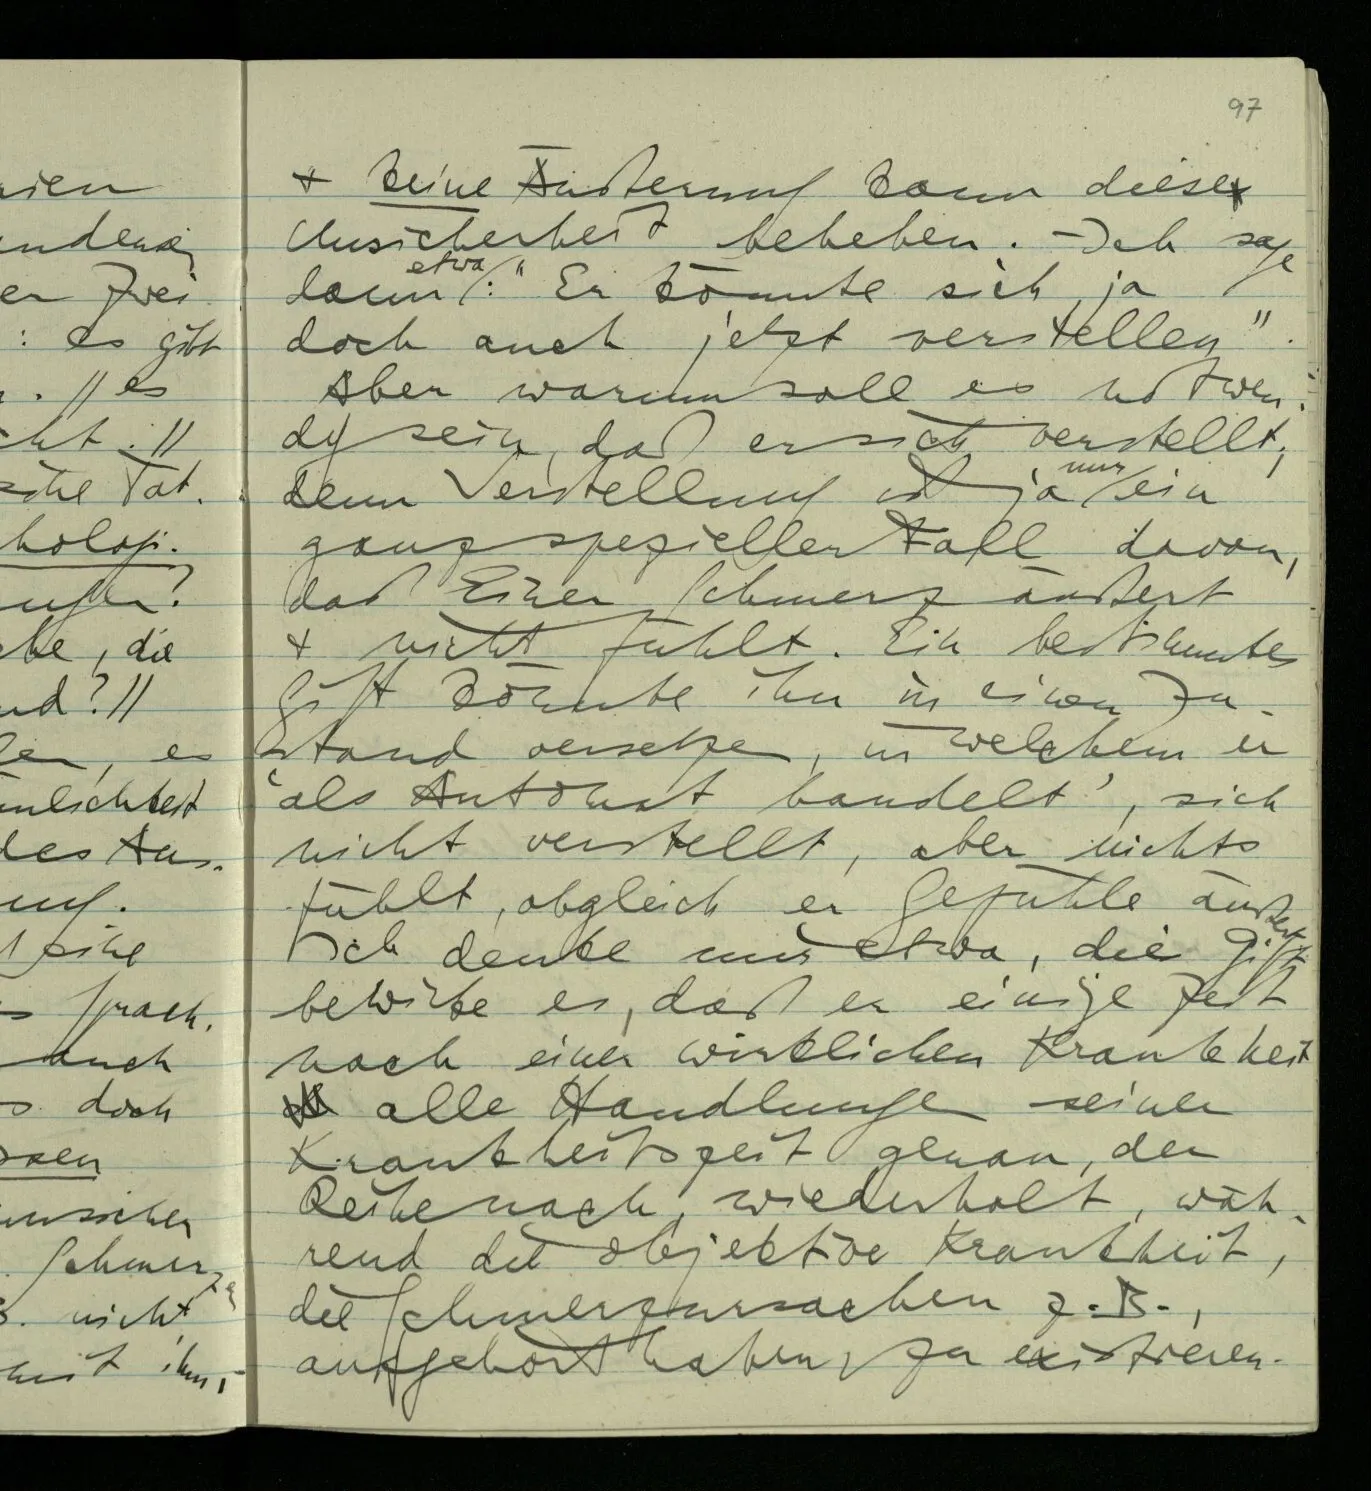 rien
: es gibt
. // es
cht . //
sche Tat.
hologi.
ungen?
che, die
nd? //
en, es
nlichkeit
des Aus.
ung.
eine
s Sprach.
auch
s doch
Schmerze
B. nicht
mit ihm,
97
+ keine Äußerung kann diese
Unsicherheit beheben. – Ich sage
dann etwa: "Er könnte sich ja
doch auch jetzt verstellen".
Aber warum soll es notwen-
dig sein, daß er sich verstellt;
denn Verstellung ist ja nur ein
ganz spezieller Fall davon,
daß Einer Schmerz äußert
+ nicht fühlt. Ein bestimmtes
Gift könnte ihn in einen Zu-
stand versetzen, in welchem er
'als Automat handelt', sich
nicht verstellt, aber nichts
fühlt, obgleich er Gefühle äußert
Ich denke mir etwa, die Gift
bewirke es, daß er einige Zeit
nach einer wirklichen Krankheit
alle Handlungen seiner
Krankheitszeit genau, der
Reihe nach, wiederholt, wäh-
rend die objektive Krankheit,
die Schmerzursachen z.B.,
aufgehört haben, zu existieren.